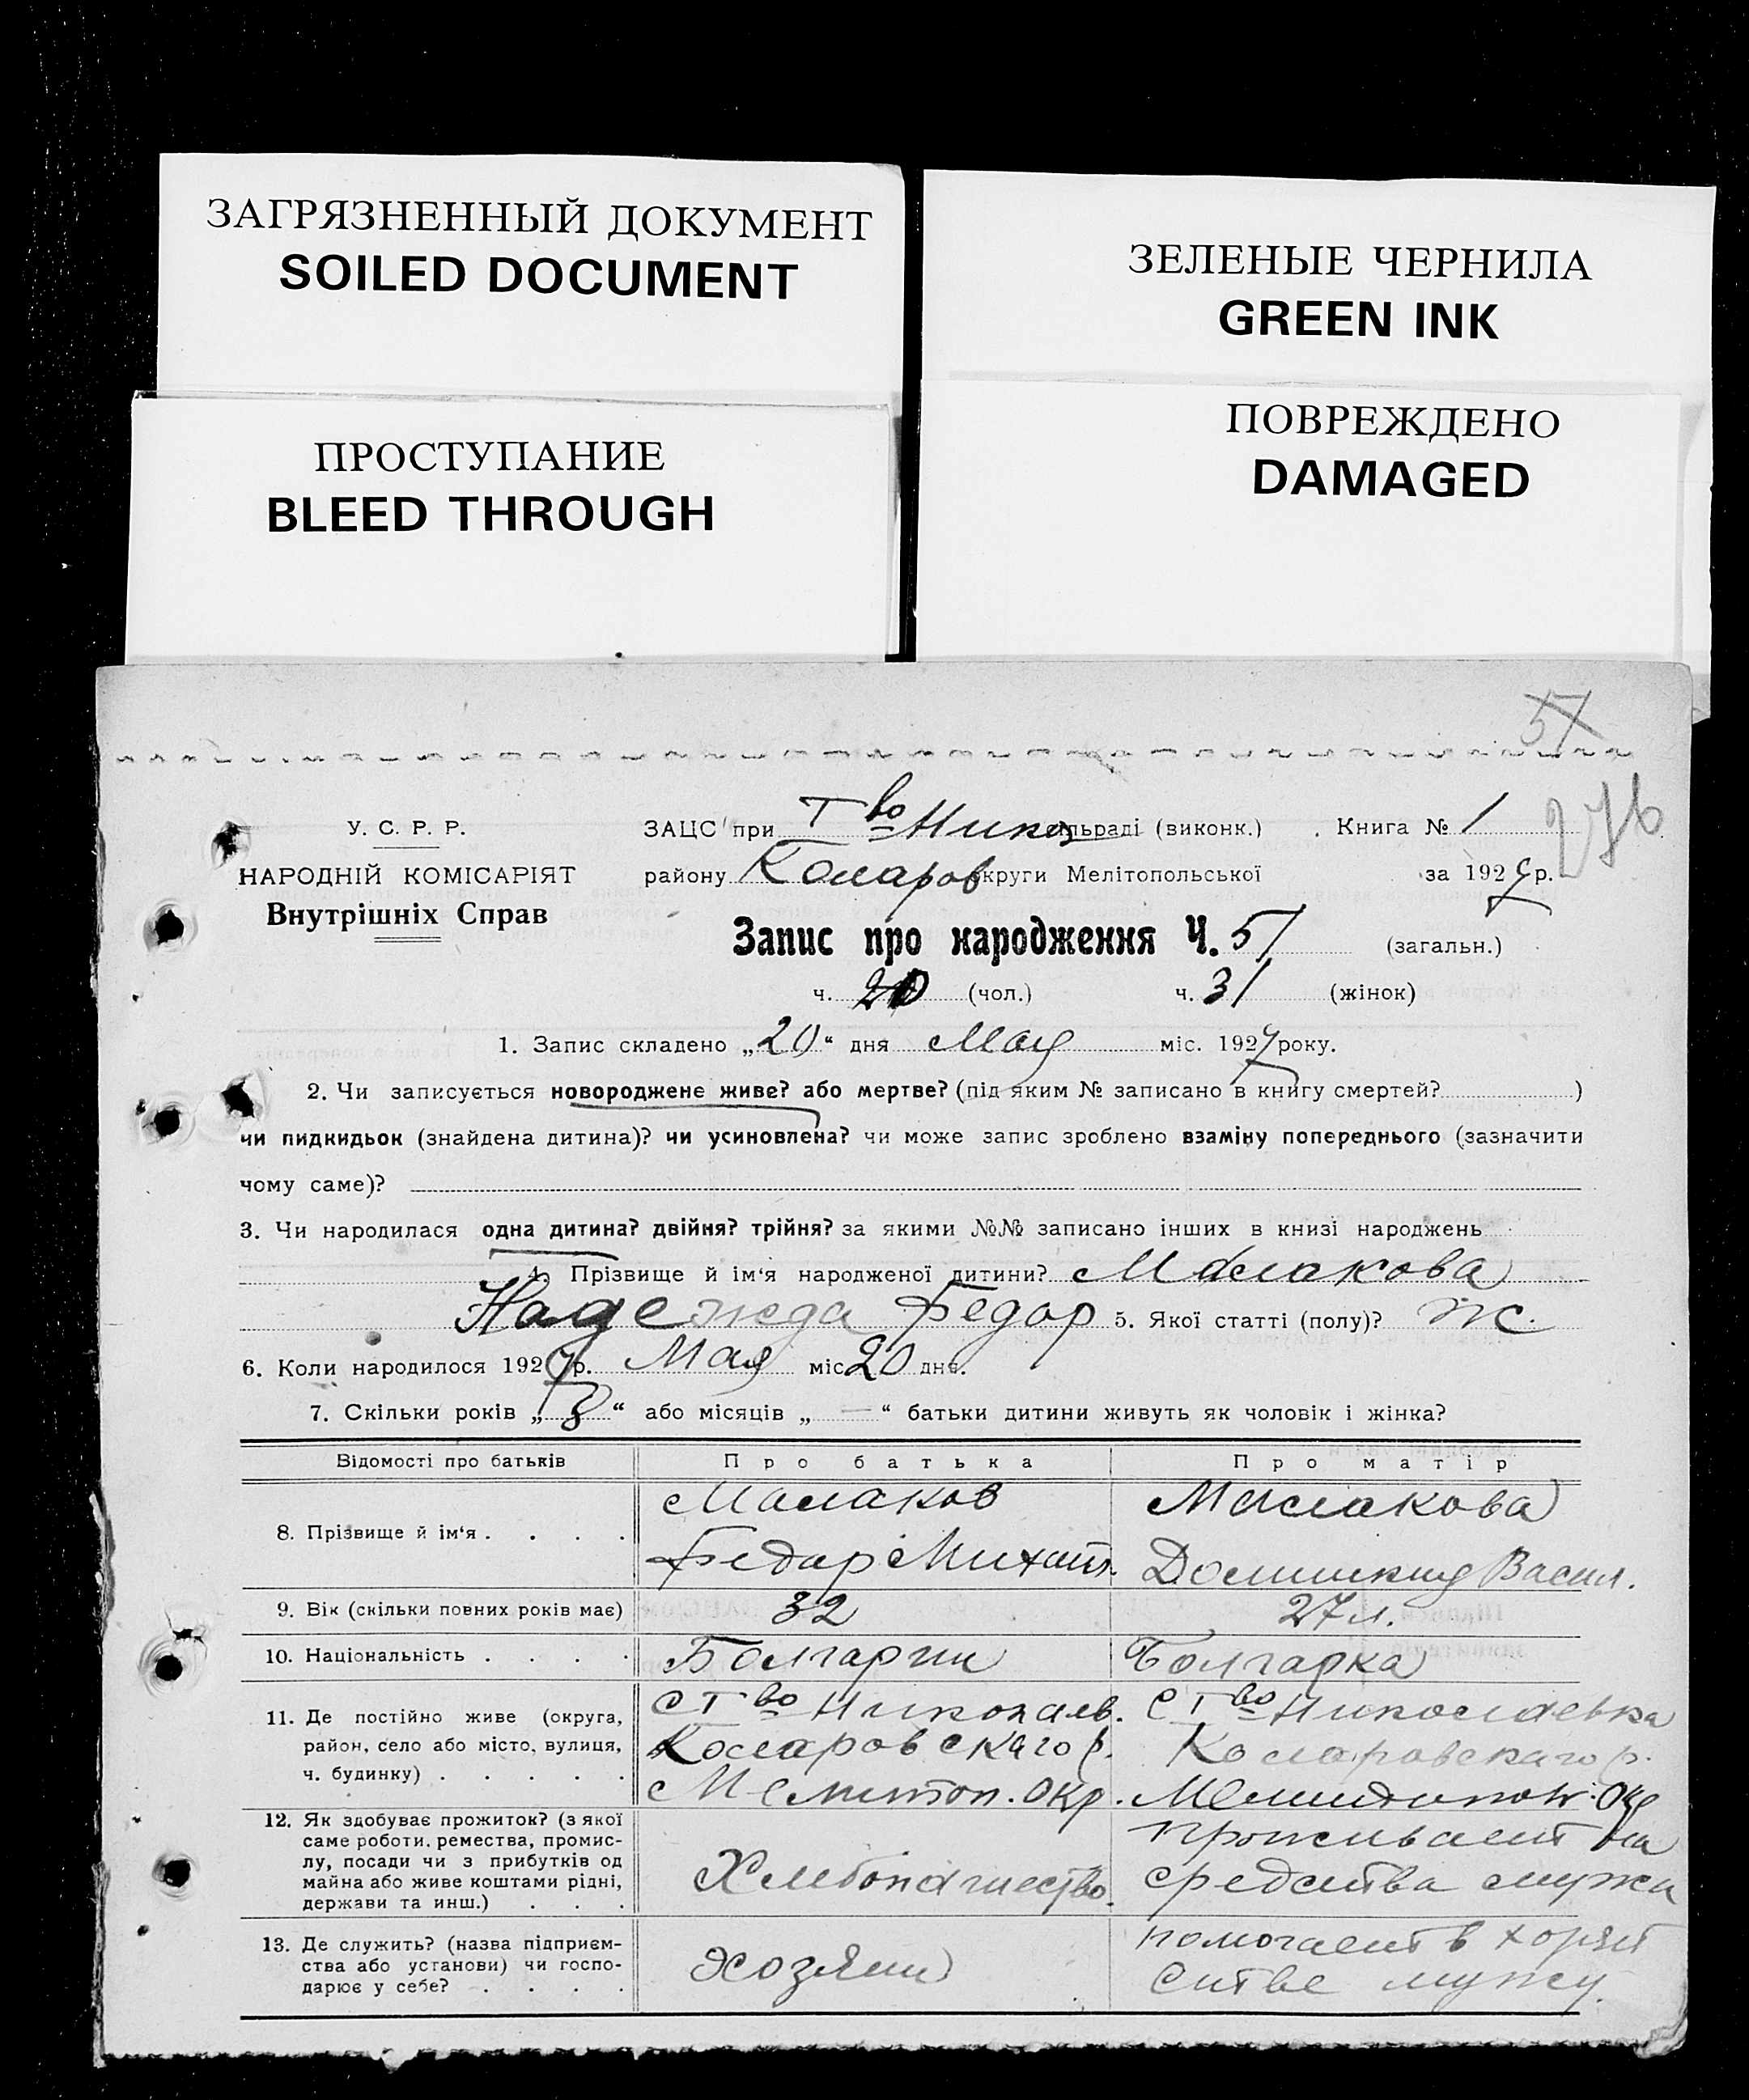 ЗАГРЯЗНЕННЫЙ ДОКУМЕНТ
SOILED DOCUMENT
ЗЕЛЕНЫЕ ЧЕРНИЛА
GREEN INK
ПРОСТУПАНИЕ
BLEED THROUGH
ПОВРЕЖДЕНО
DAMAGED
57
276
У. С. Р. Р.
НАРОДНІЙ КОМІСАРІЯТ
Внутрішніх Справ
ЗАЦС при Т во Никол сільраді (виконк.) Книга № 1
району Коларов округи Мелітопольської за 1927 р.
Запис про народження Ч. 51 (загальн.)
ч. 20 (чол.) ч. 31 (жінок)
1. Запис складено „20“ дня Мая міс. 1927 року.
2. Чи записується новороджене живе? або мертве? (під яким № записано в книгу смертей? )
чи пидкидьок (знайдена дитина)? чи усиновлена? чи може запис зроблено взаміну попереднього (зазначити
чому саме)?
3. Чи народилася одна дитина? двійня? трійня? за якими №№ записано інших в книзі народжень
4. Прізвище й ім‘я народженої дитини? Малакова
Надежда Федор 5. Якої статті (полу)? ж.
6. Коли народилося 1927 р. Мая міс 20 дня.
7. Скільки років „8“ або місяців „—“ батьки дитини живуть як чоловік і жінка?
Відомості про батьків Про батька Про матір
8. Прізвище й ім‘я Малаков Малакова
Федар Михайл. Домникия Васил.
9. Вік (скільки повних років має) 32 27 л.
10. Національність Болгарин Болгарка
11. Де постійно живе (округа, район, село або місто, вулиця, ч. будинку)
С Т во Николаев. С Т во Николаевка
Коларовскаго р. Коларовскаго р.
Мелитоп. Окр. Мелитопол. Окр
12. Як здобуває прожиток? (з якої саме роботи, ремества, промислу, посади чи з прибутків од майна або живе коштами рідні, держави та инш.)
Хлебопашество. проживает на
средства мужа
13. Де служить? (назва підприємства або установи) чи господарює у себе?
хозяин помогает в
мужу.